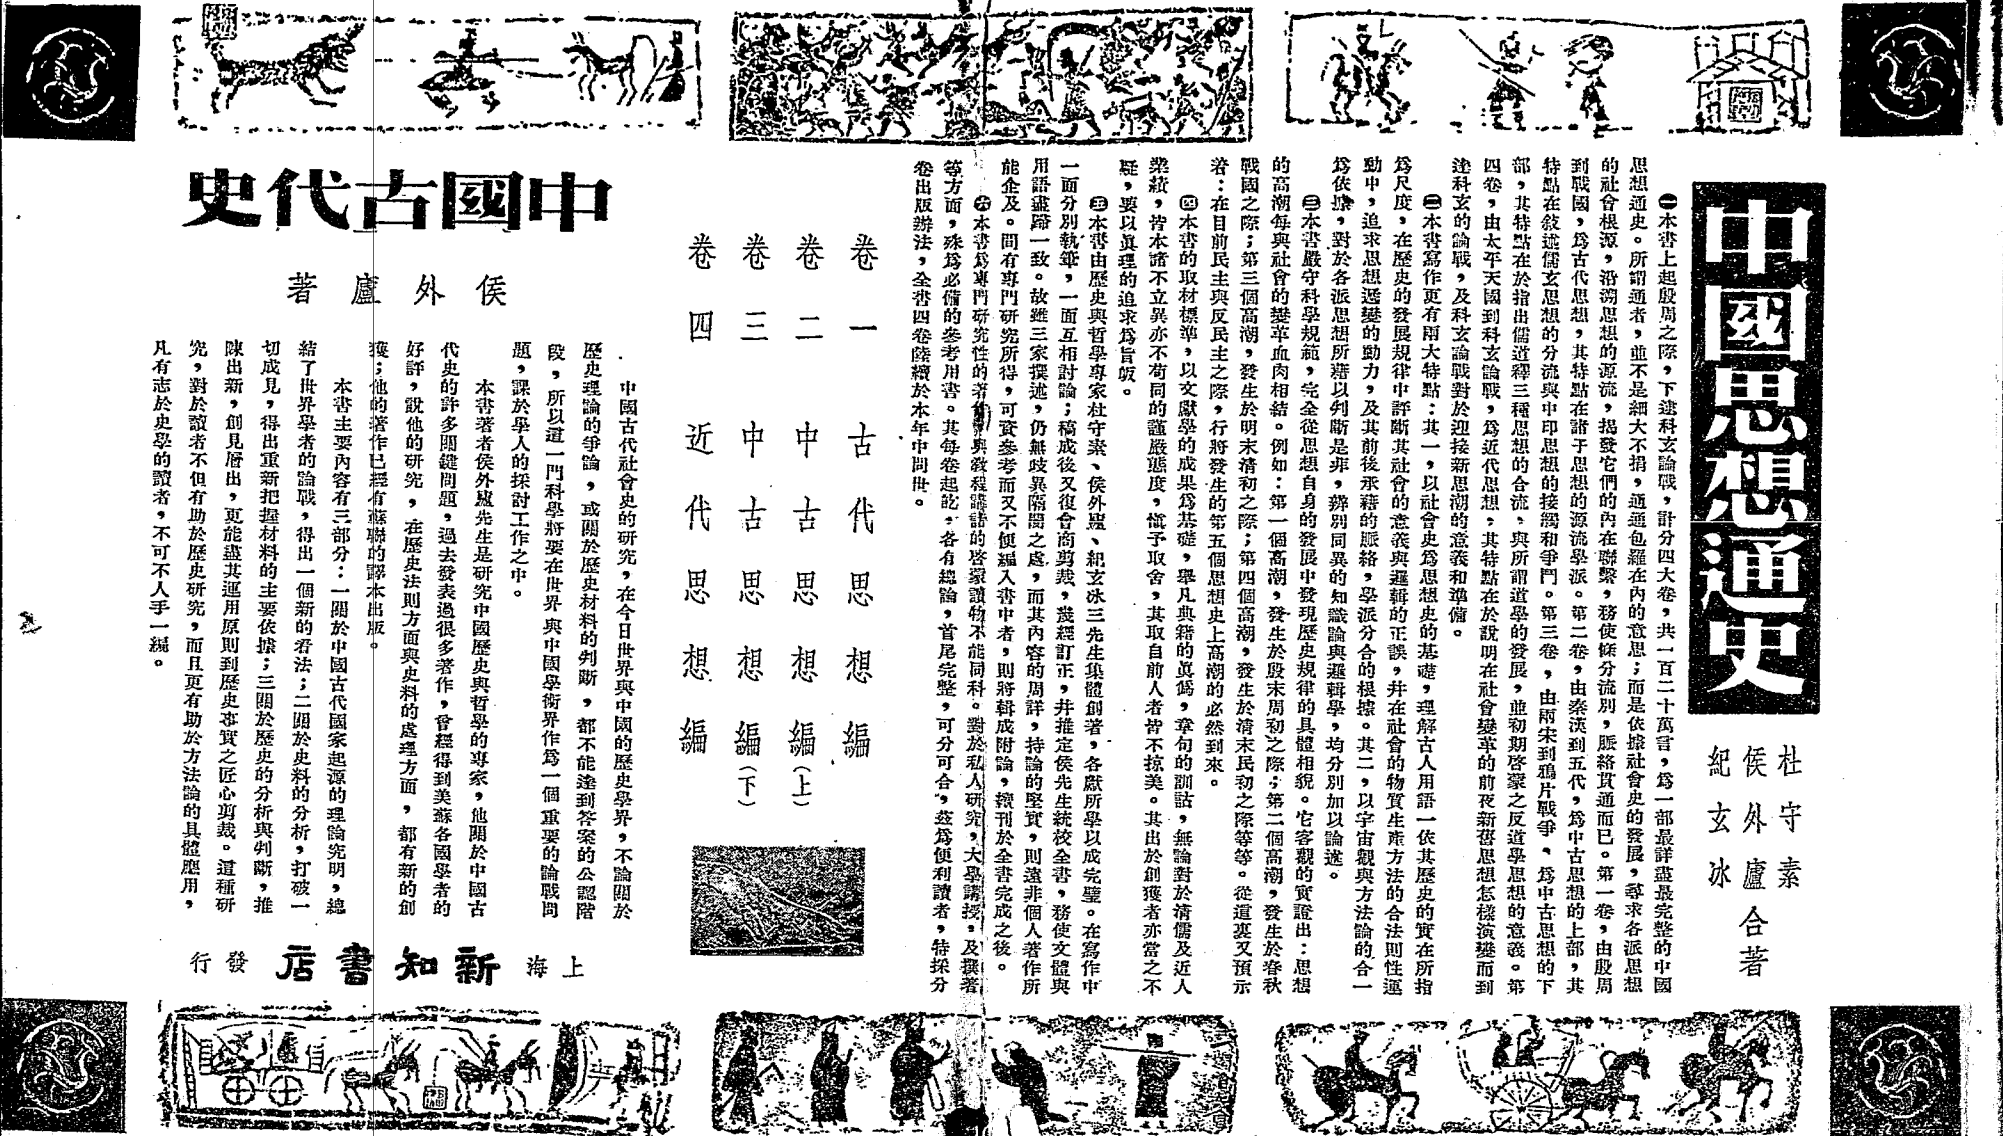 中國思想通史
杜守素
侯外廬 合著
紀玄冰
㊀本書上起殷周之際，下逮科玄論戰，計分四大卷，共一百二十萬言，爲一部最詳盡最完整的中國
思想通史。所謂通者，並不是細大不捐，通通包羅在內的意思；而是依據社會史的發展，尋求各派思想
的社會根源，沿溯思想的源流，揭發它們的內在聯繫，務使條分流別，脈絡貫通而已。第一卷，由殷周
到戰國，爲古代思想，其特點在諸子思想的源流學派。第二卷，由秦漢到五代，爲中古思想的上部，其
特點在敍述儒玄思想的分流與中印思想的接觸和爭鬥。第三卷，由兩宋到鴉片戰爭，爲中古思想的下
部，其特點在於指出儒道釋三種思想的合流，與所謂道學的發展，並初期啓蒙之反道學思想的意義。第
四卷，由太平天國到科玄論戰，爲近代思想，其特點在於說明在社會變革的前夜新舊思想怎樣演變而到
達科玄的論戰，及科玄論戰對於迎接新思潮的意義和準備。
㊁本書寫作更有兩大特點：其一，以社會史爲思想史的基礎，理解古人用語一依其歷史的實在所指
爲尺度，在歷史的發展規律中評斷其社會的意義與邏輯的正誤，并在社會的物質生產方法的合法則性運
動中，追求思想遞變的動力，及其前後承藉的脈絡，學派分合的根據。其二，以宇宙觀與方法論的合一
爲依據，對於各派思想所藉以判斷是非，辨別同異的知識論與邏輯學，均分別加以論述。
㊂本書嚴守科學規範，完全從思想自身的發展中發現歷史規律的具體相貌。它客觀的實證出：思想
的高潮每與社會的變革血肉相結。例如：第一個高潮，發生於殷末周初之際；第二個高潮，發生於春秋
戰國之際；第三個高潮，發生於明末清初之際；第四個高潮，發生於清末民初之際等等。從這裏又預示
著：在目前民主與反民主之際，行將發生的第五個思想史上高潮的必然到來。
㊃本書的取材標準，以文獻學的成果爲基礎，舉凡典籍的眞僞，章句的訓詁，無論對於清儒及近人
業績，皆本諸不立異亦不苟同的謹嚴態度，愼予取舍，其取自前人者皆不掠美。其出於創獲者亦當之不
疑，要以眞理的追求爲旨皈。
㊄本書由歷史與哲學專家杜守素、侯外廬、紀玄冰三先生集體創著，各獻所學以成完璧。在寫作中
一面分別執筆，一面互相討論；稿成後又復會商剪裁，幾經訂正，并推定侯先生統校全書，務使文體與
用語盡歸一致。故雖三家撰述，仍無歧異隔閡之處，而其內容的周詳，持論的堅實，則遠非個人著作所
能企及。間有專門研究所得，可資參考而又不便編入書中者，則將輯成附論，擴刊於全書完成之後。
㊅本書爲專門研究性的著作，與敎程講話的啓蒙讀物不能同科。對於私人研究，大學講授，及撰著
等方面，殊爲必備的參考用書。其每卷起訖，各有總論，首尾完整，可分可合，茲爲便利讀者，特採分
卷出版辦法，全書四卷陸續於本年中問世。
卷一 古代思想編
卷二 中古思想編（上）
卷三 中古思想編（下）
卷四 近代思想編
中國古代史
侯外廬著
中國古代社會史的研究，在今日世界與中國的歷史學界，不論關於
歷史理論的爭論，或關於歷史材料的判斷，都不能達到答案的公認階
段，所以這一門科學將要在世界與中國學術界作爲一個重要的論戰問
題，課於學人的探討工作之中。
本書著者侯外廬先生是研究中國歷史與哲學的專家，他關於中國古
代史的許多關鍵問題，過去發表過很多著作，曾經得到美蘇各國學者的
好評，說他的研究，在歷史法則方面與史料的處理方面，都有新的創
獲；他的著作已經有蘇聯的譯本出版。
本書主要內容有三部分：一關於中國古代國家起源的理論究明，總
結了世界學者的論戰，得出一個新的看法；二關於史料的分析，打破一
切成見，得出重新把握材料的主要依據；三關於歷史的分析與判斷，推
陳出新，創見層出，更能盡其運用原則到歷史事實之匠心剪裁。這種研
究，對於讀者不但有助於歷史研究，而且更有助於方法論的具體應用，
凡有志於史學的讀者，不可不人手一編。
上海 新知書店 發行